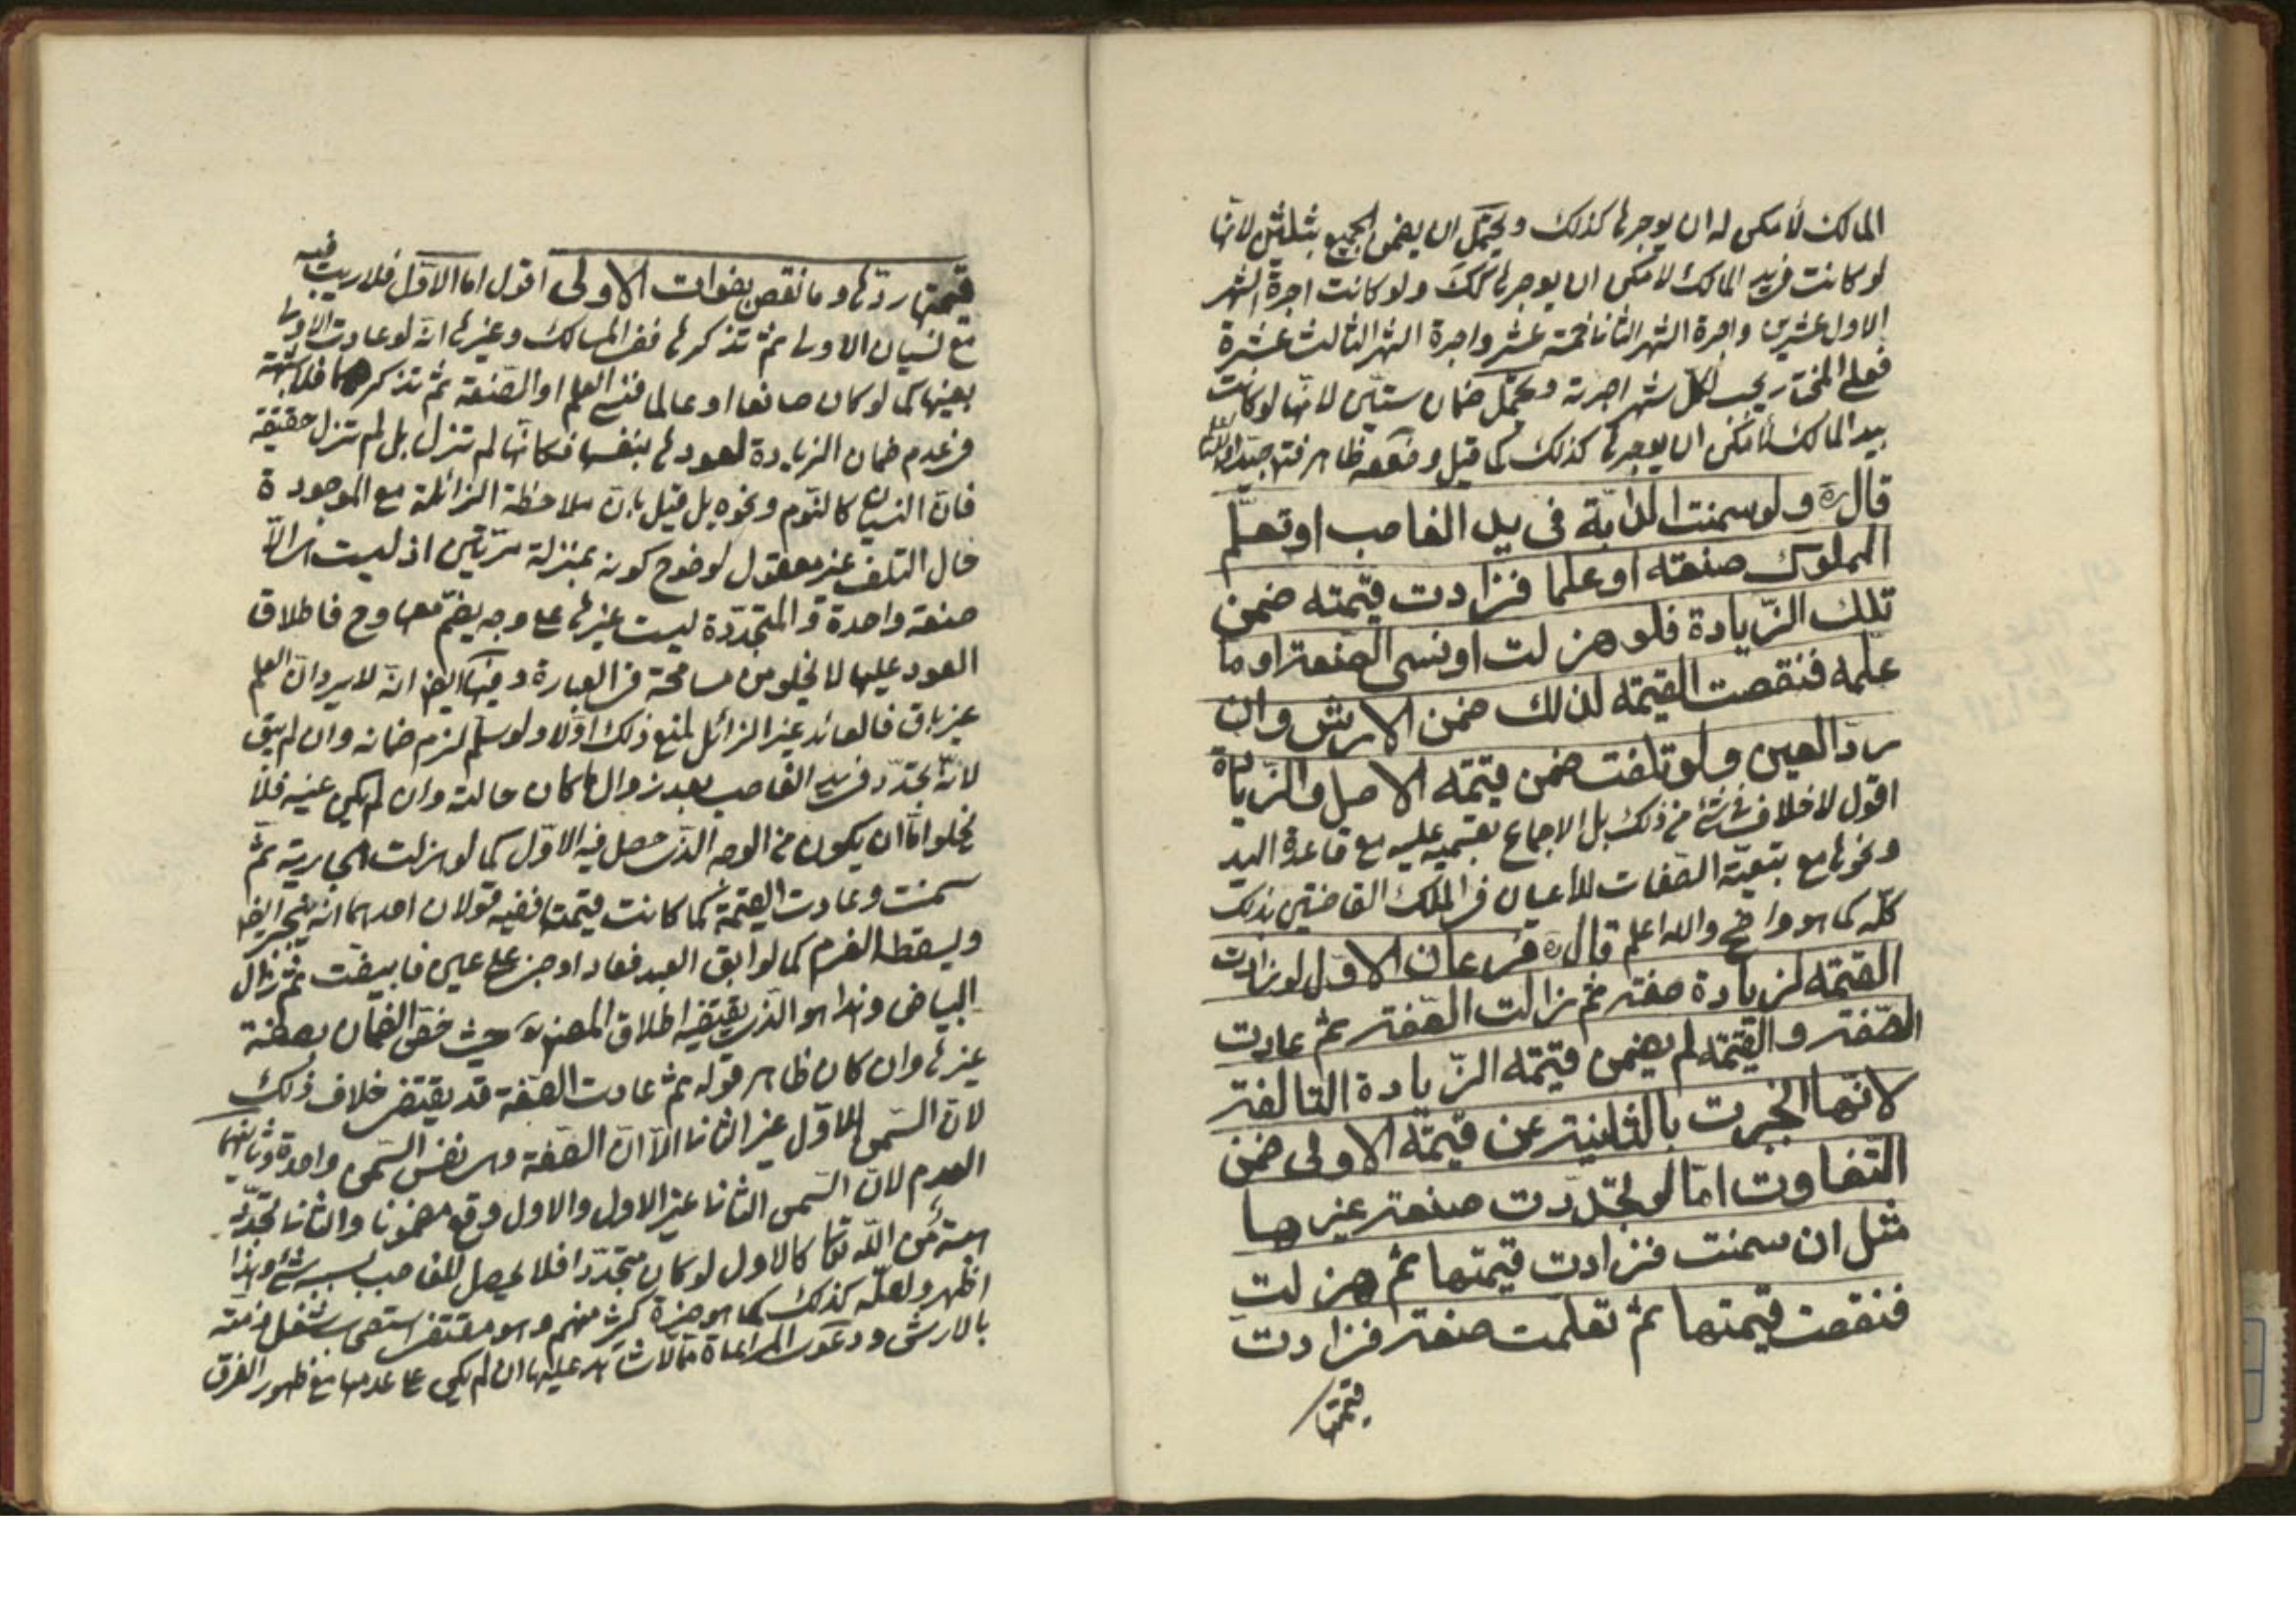 المالك لأمكن له ان يوجرها كذلك ويحتمل ان يضمن الجميع بثلثين لانها
لو كانت في يد المالك لأمكن ان يوجرها كك ولو كانت اجرة الشهر
الاول عشرين واجرة الشهر الثاني خمسة عشر واجرة الشهر الثالث عشرة
فعلى المختار يجب لكل شهر اجرته ويحتمل ضمان ستين لانها لو كانت
بيد المالك لأمكن ان يوجرها كذلك كما قيل وضعفه ظاهر فتد جيدا
قال ره ولو سمنت الدابة في يد الغاصب او تعلم
المملوك صنعة او علما فزادت قيمته ضمن
تلك الزيادة فلو هزلت او نسى الصنعة او ما
علمه فنقصت القيمة لذلك ضمن الارش وان
رد العين ولو تلفت ضمن قيمة الاصل والزيادة
اقول لا خلاف في شئ من ذلك بل الاجماع بقسميه عليه مع قاعدة اليد
ونحوها مع تبعية الصفات للأعيان في الملك القاضيتين بذلك
كله كما هو واضح والله اعلم قال ره فرعان الاول لو زادت
القيمة لزيادة صفة ثم زالت الصفة ثم عادت
الصفة والقيمة لم يضمن قيمة الزيادة التالفة
لانها انجبرت بالثانية عن قيمة الاولى ضمن
التفاوت اما لو تجددت صفة غيرها
مثل ان سمنت فزادت قيمتها ثم هزلت
فنقصت قيمتها ثم تعلمت صنعة فزادت
قيمتها
قيمتها ردها وما نقص بفوات الاولى اقول اما الاول فلا ريب فيه
مع نسيان الاولى ثم تذكرها ففى المسالك وغيرها انه لو عادت الاولى
بعينها كما لو كان صانعا او عالما فنسى العلم او الصنعة ثم تذكرهما فلا شبهة
في عدم ضمان الزيادة لعودها بنفسها فكانها لم تزل بل لم تزل حقيقة
فان النسيان كالنوم ونحوه بل قيل بان ملاحظة الزائلة مع الموجودة
حال التلف غير معقول لوضوح كونه بمنزلة مرتين اذ ليست الا
صنعة واحدة والمتجددة ليست غيرها على وجه يضم معها وح فاطلاق
العود عليها لا يخلو من مسامحة في العبارة وفيها ايضا انه لا يرد ان العلم
غير باق فالعائد غير الزائل لمنع ذلك اولا ولو سلم لزم ضمانه وان لم يبق
لانه تجدد في يد الغاصب بعد زوال ما كان حالته وان لم يكن عينه فلا
يخلو اما ان يكون من الوجه الذى حصل فيه الاول كما لو هزلت الجارية ثم
سمنت وعادت القيمة كما كانت قيمتها ففيه قولان احدهما انه ينجبر ايضا
ويسقط الغرم كما لو ابق العبد فعاد او جنى على عين فابيضت ثم زال
البياض وهذا هو الذى يقتضيه اطلاق المصنف حيث خص الضمان بصفة
غيرها وان كان ظاهر قوله ثم عادت الصفة قد يقتضى خلاف ذلك
لان السمن الاول غير الثانى الا ان الصفة وهى نفس السمن واحدة وثانيهما
العدم لان السمن الثانى غير الاول والاول وقع مضمونا والثانى تجدد
هبة من الله تعالى كالاول لو كان متجددا فلا يحصل للغاصب بسببه شئ وهذا
اظهر ولعله كذلك كما هو خيرة كثير منهم وهو مقتضى استصحاب شغل ذمته
بالارش ودعوى المراعاة مما لا شاهد عليها ان لم يكن على عدمها مع ظهور الفرق